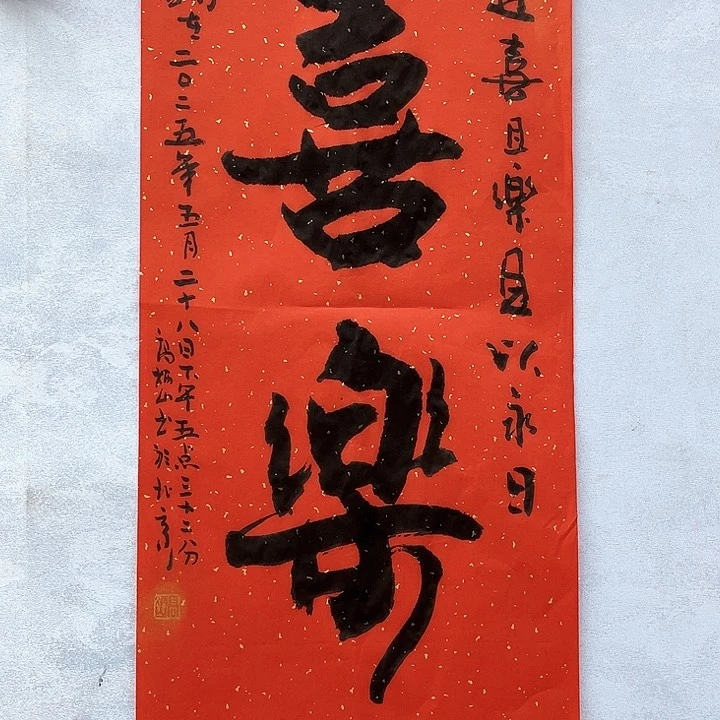 喜且樂且以永日
喜樂
在二〇二五年五月二十八日下午五点三十二分
书於北京